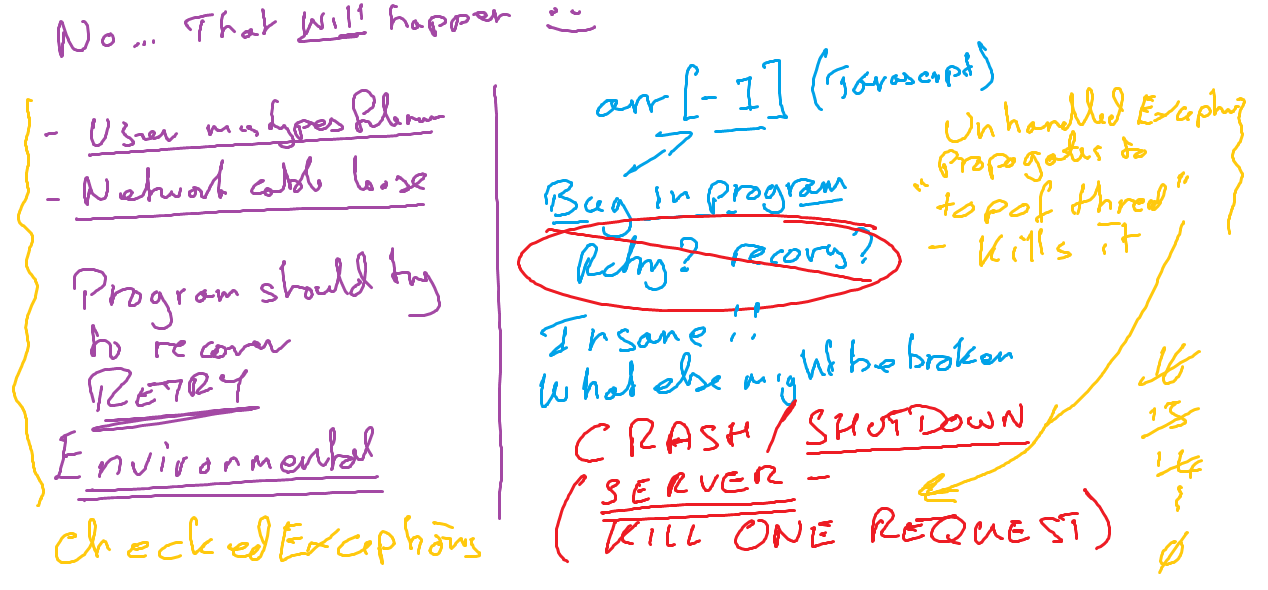 No... That will happen
- User mistypes filename
- Network cable loose
Program should try
to recover
RETRY
Environmental
checked Exceptions
arr [-1] (Javascript)
Bug in program
Retry? recovery?
Insane!!
What else might be broken
CRASH / SHUTDOWN
(SERVER -
KILL ONE REQUEST)
Unhandled Exception
propogates to
"top of thred"
- Kills it
16
15
14
0